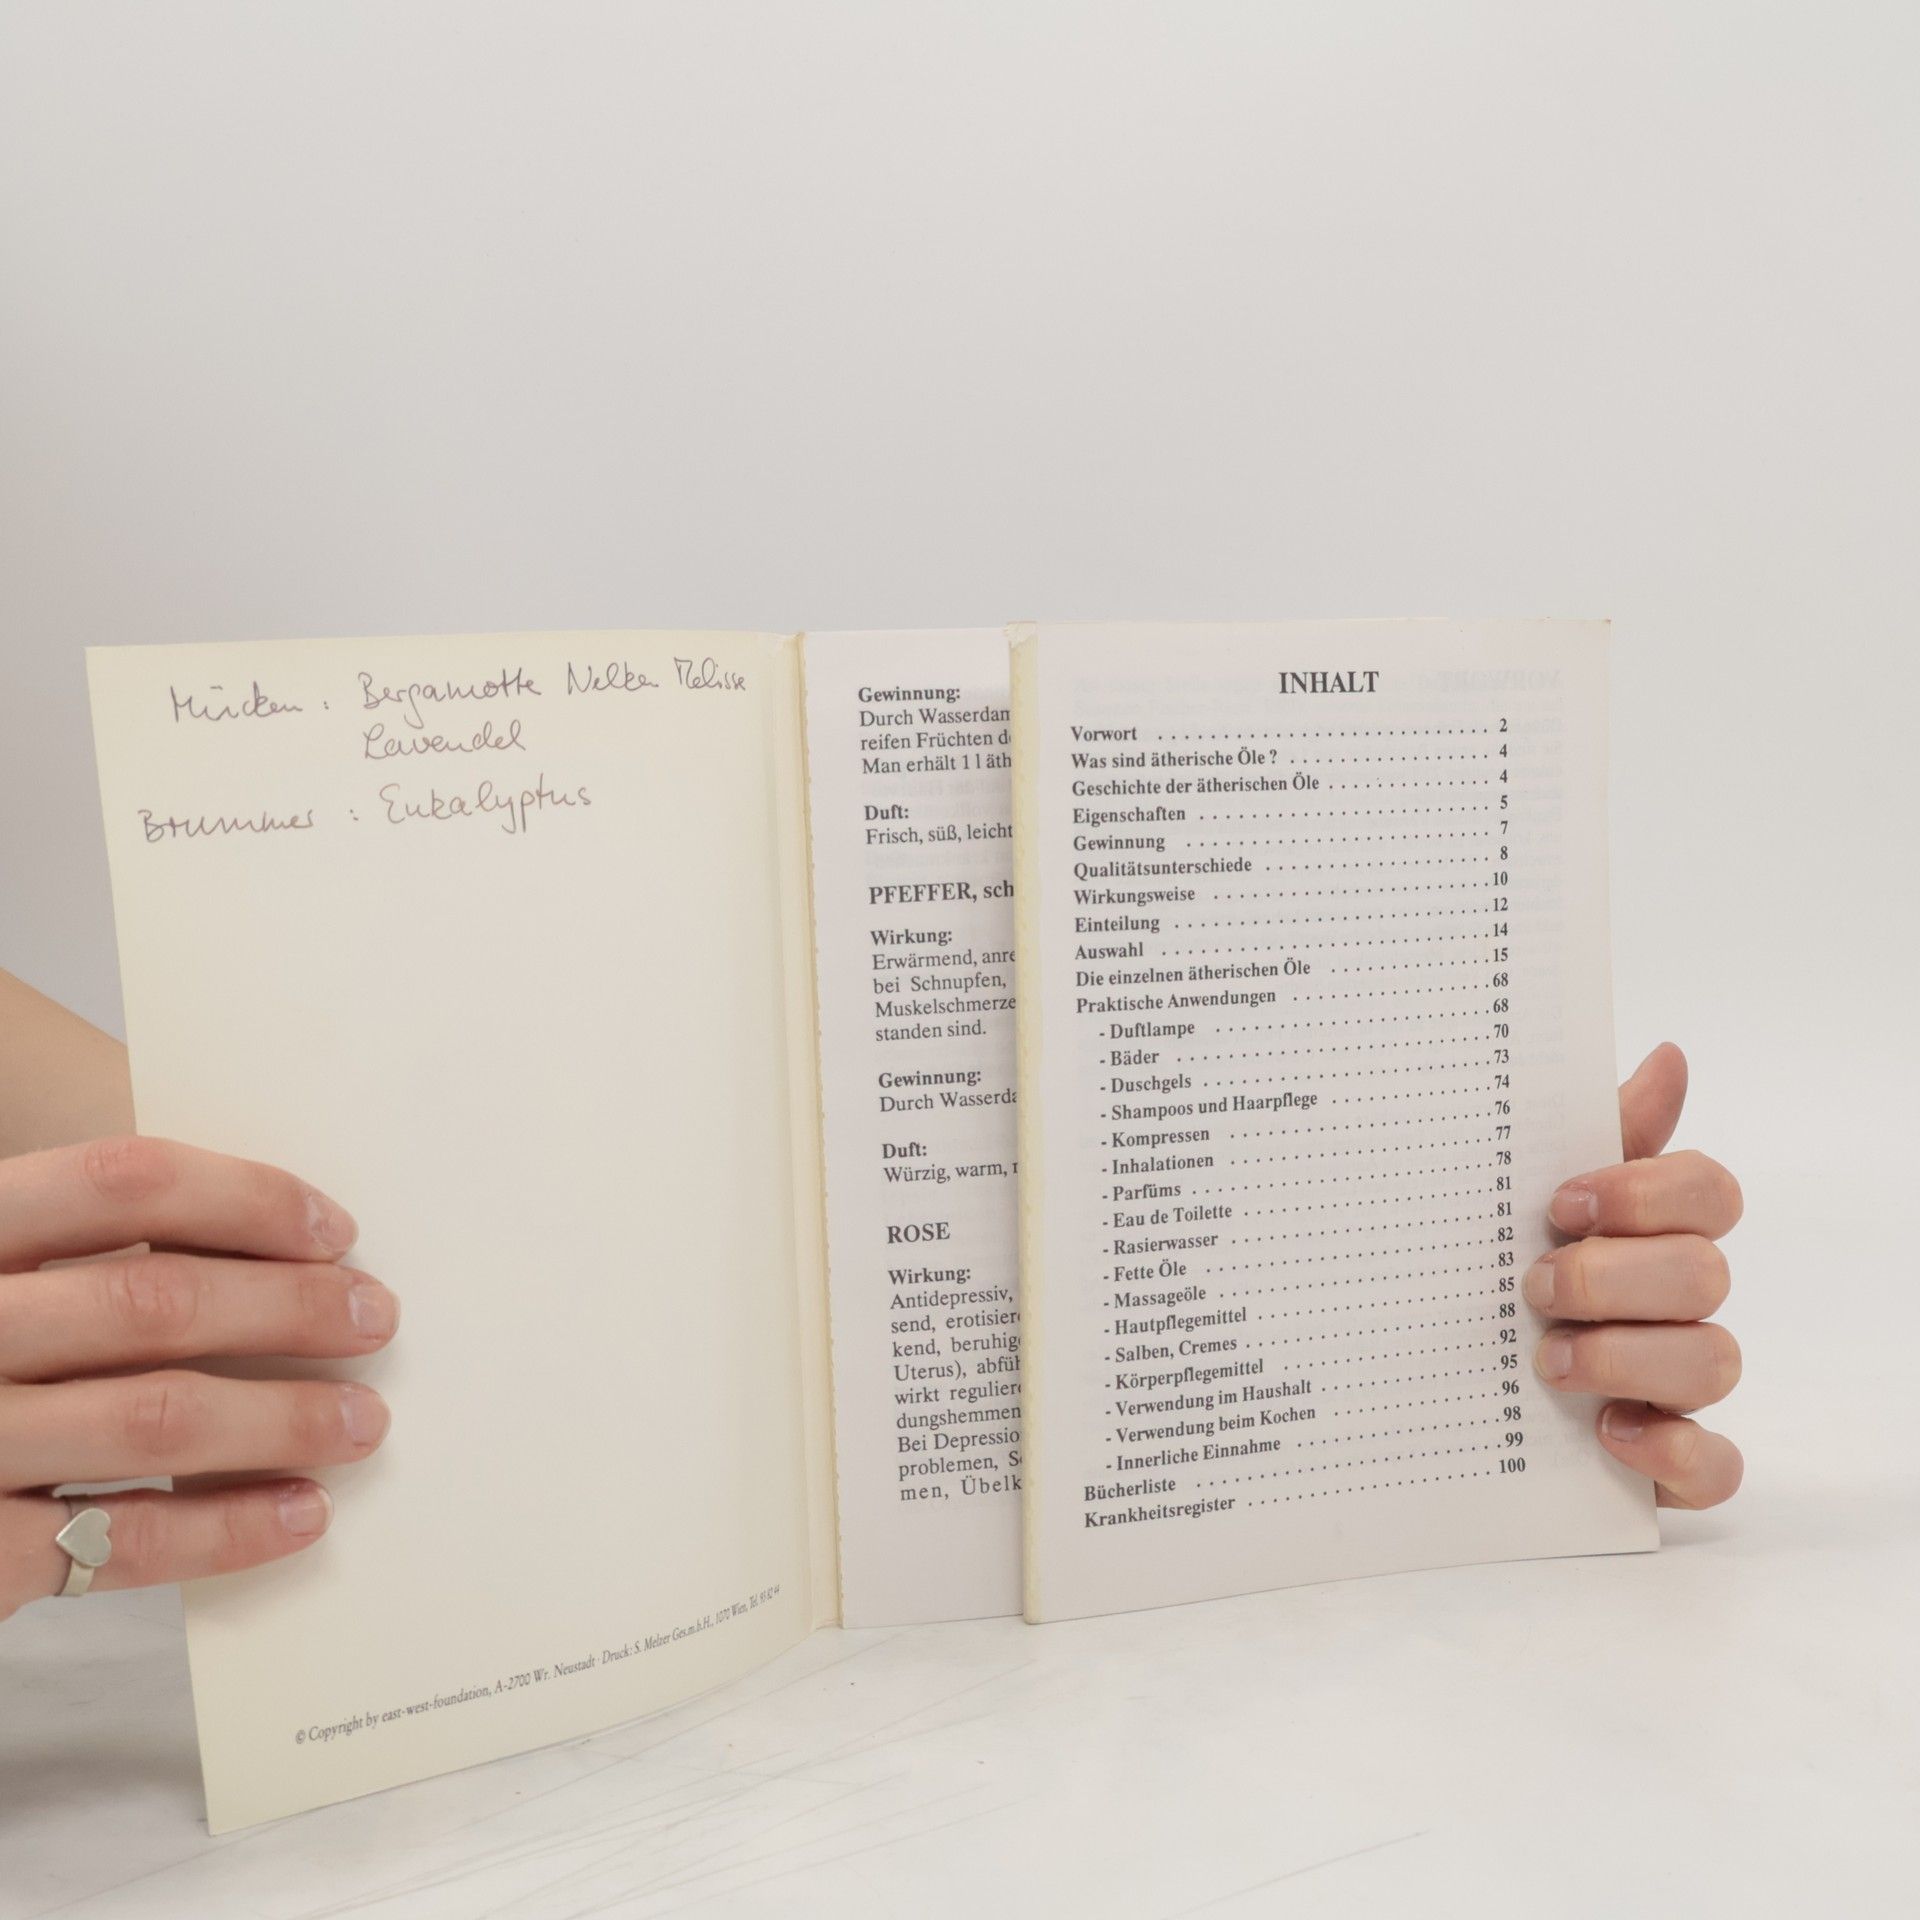 Mücken : Bergamotte Nelken Melisse
Lavendel
Brummer : Eukalyptus
© Copyright by east-west-foundation, A-2700 Wr. Neustadt · Druck: S. Melzer Ges.m.b.H., 1070 Wien, Tel. 93 82 44
Gewinnung:
Durch Wasserdam
reifen Früchten d
Man erhält 1 l äth
Duft:
Frisch, süß, leicht
PFEFFER, sch
Wirkung:
Erwärmend, anre
bei Schnupfen,
Muskelschmerze
standen sind.
Gewinnung:
Durch Wasserda
Duft:
Würzig, warm,
ROSE
Wirkung:
Antidepressiv,
send, erotisier
kend, beruhig
Uterus), abfüh
wirkt regulier
dungshemmen
Bei Depressio
problemen, S
men, Übelk
INHALT
Vorwort . . . . . . . . . . . . . . . . . . . . . . . . . . . 2
Was sind ätherische Öle ? . . . . . . . . . . . . . . . . 4
Geschichte der ätherischen Öle . . . . . . . . . . . . . 4
Eigenschaften . . . . . . . . . . . . . . . . . . . . . . . 5
Gewinnung . . . . . . . . . . . . . . . . . . . . . . . . 7
Qualitätsunterschiede . . . . . . . . . . . . . . . . . . 8
Wirkungsweise . . . . . . . . . . . . . . . . . . . . . . 10
Einteilung . . . . . . . . . . . . . . . . . . . . . . . . . 12
Auswahl . . . . . . . . . . . . . . . . . . . . . . . . . . 14
Die einzelnen ätherischen Öle . . . . . . . . . . . . . 15
Praktische Anwendungen . . . . . . . . . . . . . . . . 68
- Duftlampe . . . . . . . . . . . . . . . . . . . . . . 68
- Bäder . . . . . . . . . . . . . . . . . . . . . . . . . 70
- Duschgels . . . . . . . . . . . . . . . . . . . . . . . 73
- Shampoos und Haarpflege . . . . . . . . . . . . . 74
- Kompressen . . . . . . . . . . . . . . . . . . . . . 76
- Inhalationen . . . . . . . . . . . . . . . . . . . . . 77
- Parfüms . . . . . . . . . . . . . . . . . . . . . . . . 78
- Eau de Toilette . . . . . . . . . . . . . . . . . . . . 81
- Rasierwasser . . . . . . . . . . . . . . . . . . . . . 81
- Fette Öle . . . . . . . . . . . . . . . . . . . . . . . 82
- Massageöle . . . . . . . . . . . . . . . . . . . . . . 83
- Hautpflegemittel . . . . . . . . . . . . . . . . . . . 85
- Salben, Cremes . . . . . . . . . . . . . . . . . . . . 88
- Körperpflegemittel . . . . . . . . . . . . . . . . . 92
- Verwendung im Haushalt . . . . . . . . . . . . . . 95
- Verwendung beim Kochen . . . . . . . . . . . . . 96
- Innerliche Einnahme . . . . . . . . . . . . . . . . 98
Bücherliste . . . . . . . . . . . . . . . . . . . . . . . . 99
Krankheitsregister . . . . . . . . . . . . . . . . . . . . 100